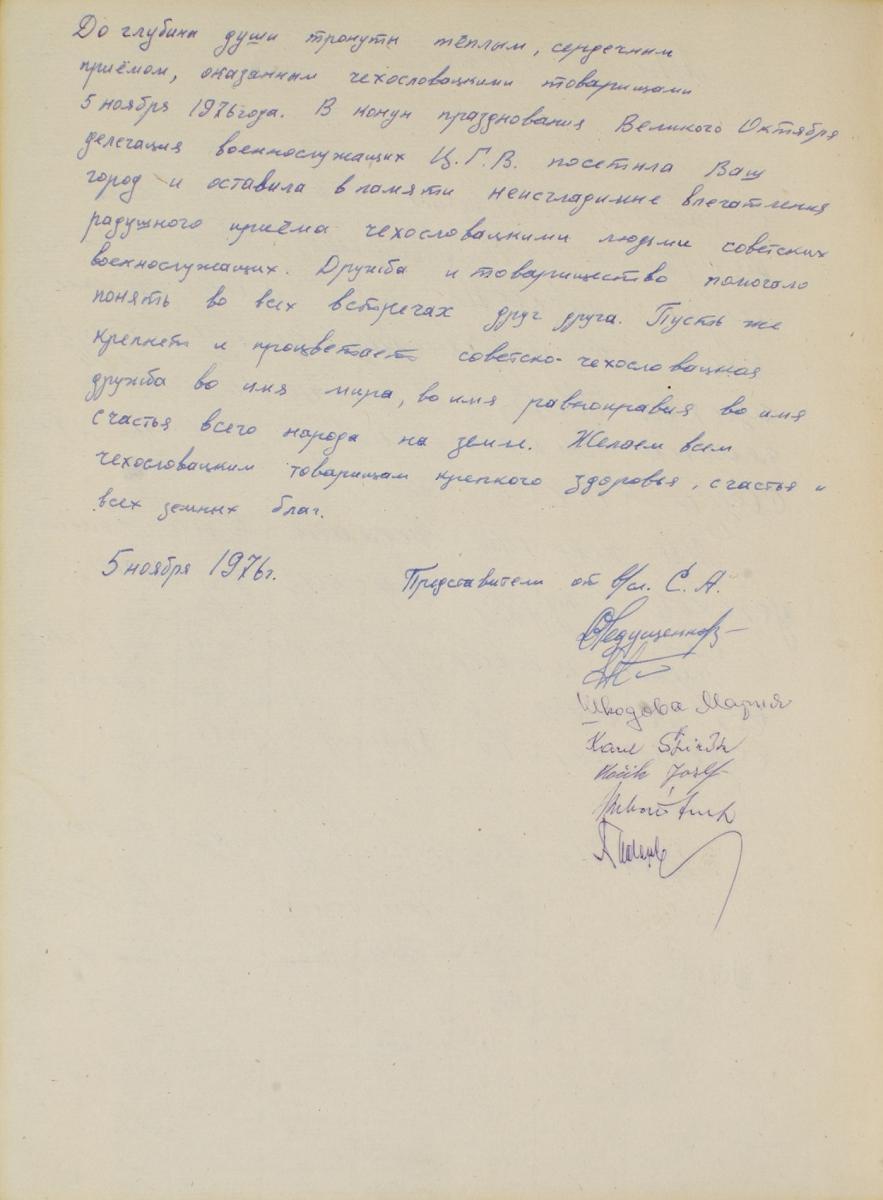 До глубины души тронуты тёплым, сердечным
приёмом, оказанным чехословацкими товарищами
5 ноября 1976 года. В конун празднования Великого Октября
делегация военнослужащих Ц.Г.В. посетила Ваш
город и оставила в памяти неизгладимые впечатления
радушного приёма чехословацкими людьми советских
военнослужащих. Дружба и товарищество помогало
понять во всех встречах друг друга. Пусть же
крепнет и процветает советско-чехословацкая
дружба во имя мира, во имя равноправия во имя
счастья всего народа на земле. Желаем всем
чехословацким товарищам крепкого здоровья, счастья и
всех земных благ.
5 ноября 1976г.
Представители от в/сл. С.А.
Шкодова Мария
Karel
Josef